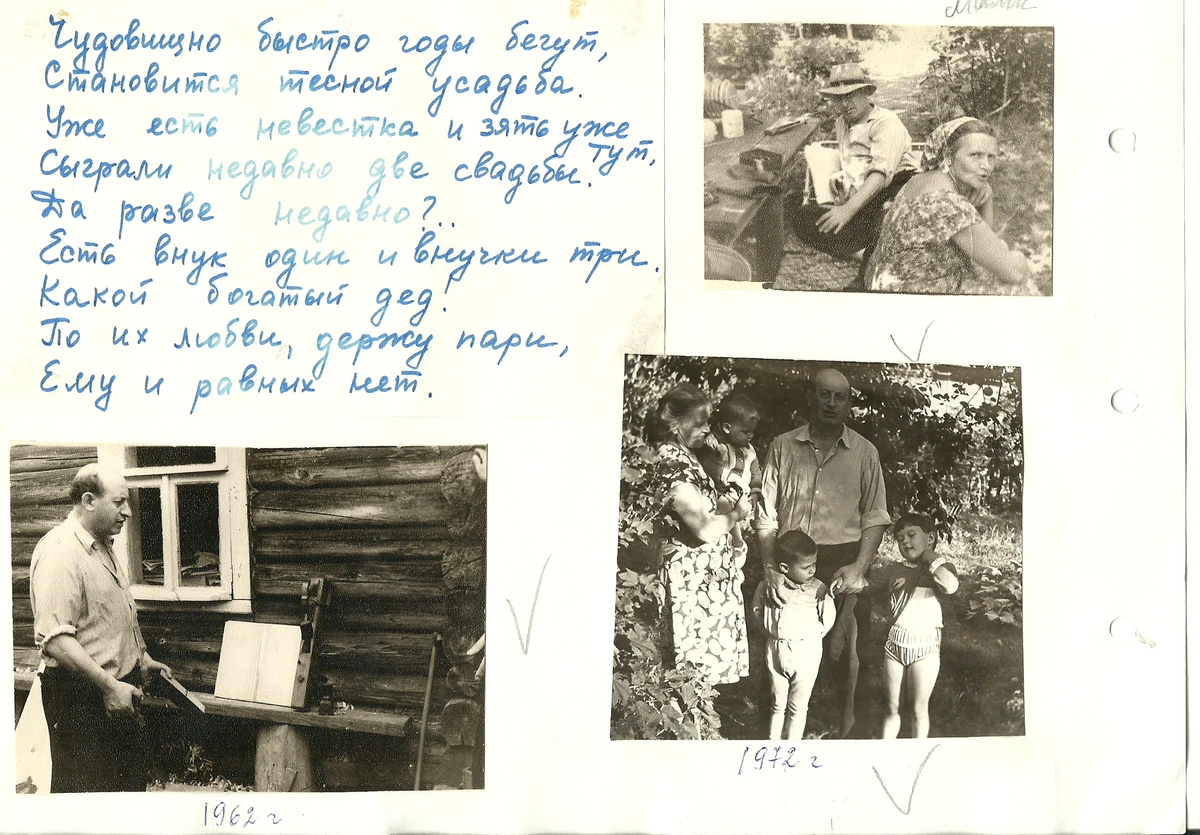 Чудовищно быстро годы бегут,
Становится тесной усадьба.
Уже есть невестка и зять уже тут,
Сыграли недавно две свадьбы.
Да разве недавно?..
Есть внук один и внучки три.
Какой богатый дед!
По их любви, держу пари,
Ему и равных нет.
1962 г
1972 г